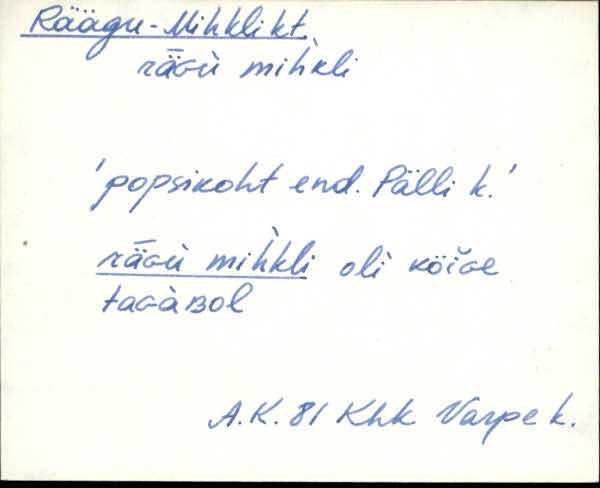 Räägu-Mihkli kt.
rǟɢù mih̀kli
'popsikoht end. Pälli k.'
rǟɢù mih̀kli oli köĭɢe
taɢàʙol
A.K. 81 Khk Varpe k.